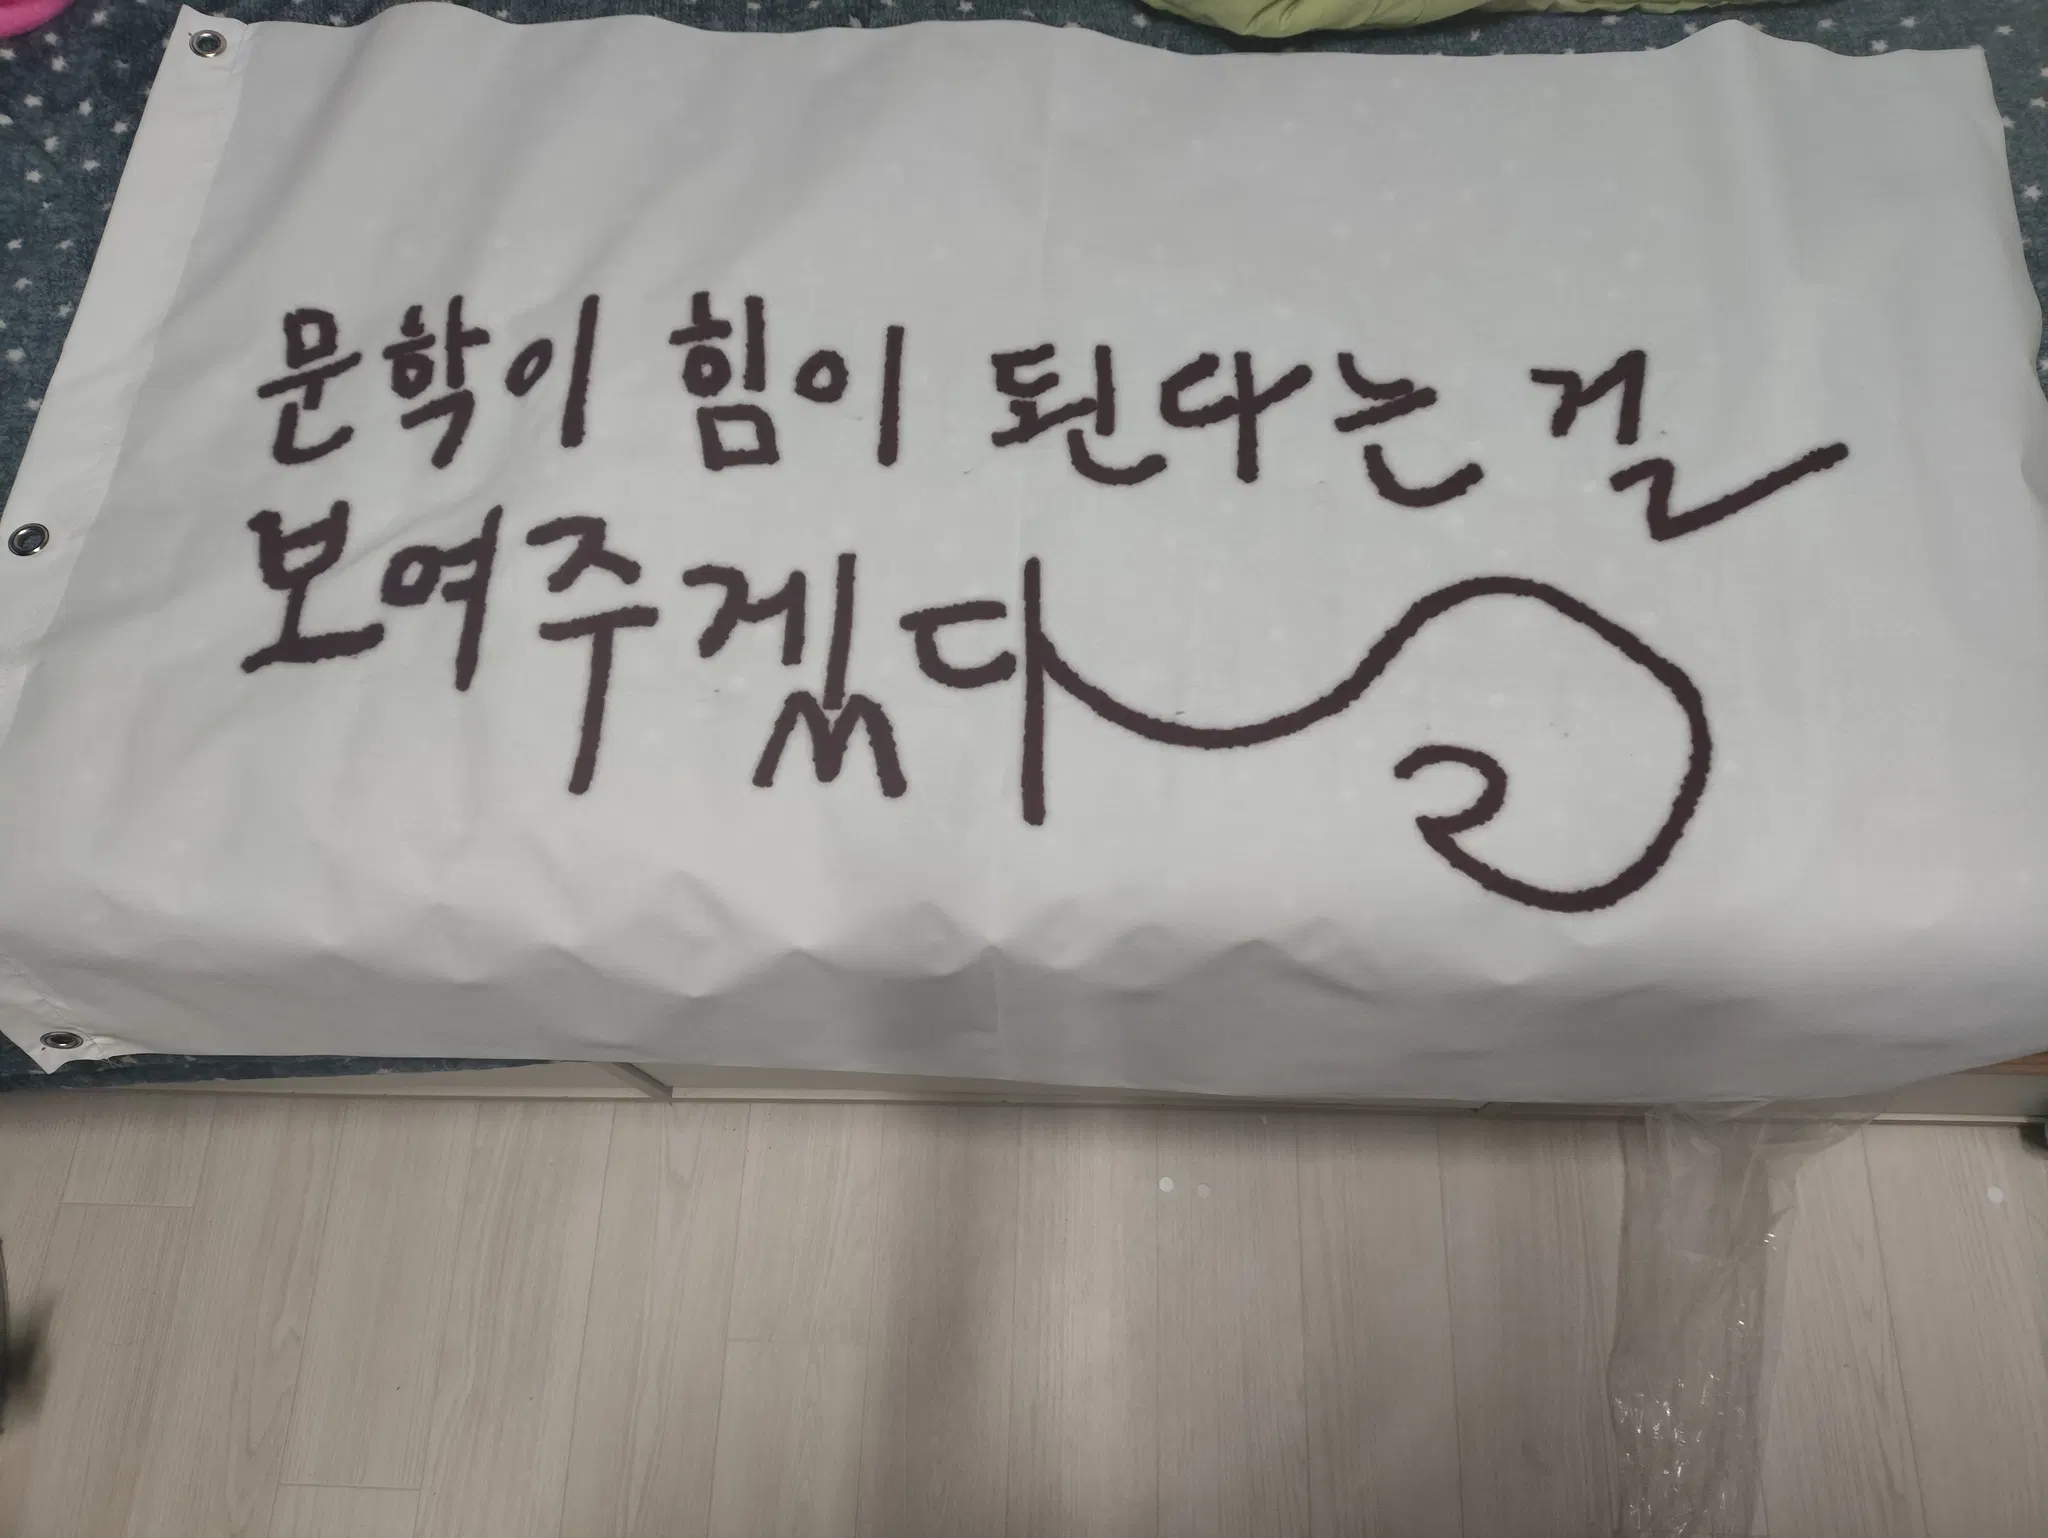 문학이 힘이 된다는 걸
보여주겠다